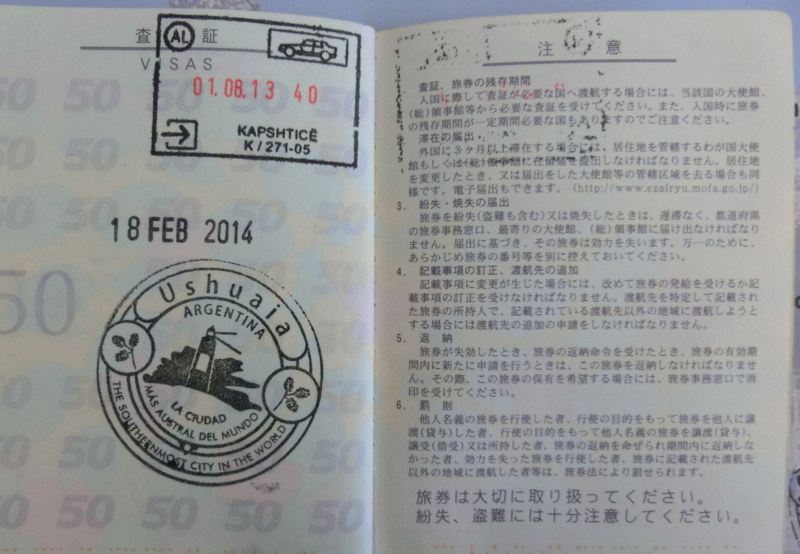 査 証
VISAS
AL
01.08.13 40
KAPSHTICË
K/271-05
18 FEB 2014
Ushuaia
ARGENTINA
LA CIUDAD
MÁS AUSTRAL DEL MUNDO
THE SOUTHERNMOST CITY IN THE WORLD
50
注 意
査証、旅券の残存期間
入国に際して査証が必要な国へ渡航する場合には、当該国の大使館、
(総)領事館等から必要な査証を受けてください。また、入国時に旅券
の残存期間が一定期間必要な国もありますのでご注意ください。
滞在の届出
外国に3ヶ月以上滞在する場合には、居住地を管轄するわが国大使
館もしくは(総)領事館に在留届を提出しなければなりません。居住地
を変更したとき、又は届出をした大使館等の管轄区域を去る場合も同
様です。電子届出もできます。(http://www.ezairyu.mofa.go.jp/)
3. 紛失・焼失の届出
旅券を紛失(盗難も含む)又は焼失したときは、遅滞なく、都道府県
の旅券事務窓口、最寄りの大使館、(総)領事館に届け出なければなり
ません。届出に基づき、その旅券は効力を失います。万一のために、
あらかじめ旅券の番号等を別に控えておいてください。
4. 記載事項の訂正、渡航先の追加
記載事項に変更が生じた場合には、改めて旅券の発給を受けるか記
載事項の訂正を受けなければなりません。渡航先を特定して記載され
た旅券の所持人で、記載されている渡航先以外の地域に渡航しようと
する場合には渡航先の追加の申請をしなければなりません。
5. 返 納
旅券が失効したとき、旅券の返納命令を受けたとき、旅券の有効期
間内に新たに申請を行うときは、この旅券を返納しなければなりませ
ん。その際、この旅券の保有を希望する場合には、旅券事務窓口で消
印を受けてください。
6. 罰 則
他人名義の旅券を行使した者、行使の目的をもって旅券を他人に譲
渡(貸与)した者、行使の目的をもって他人名義の旅券を譲渡(貸与)、
譲受(借受)又は所持した者、旅券の返納を命ぜられ期間内に返納しな
かった者、効力を失った旅券を行使した者、旅券に記載された渡航先
以外の地域に渡航した者等は、旅券法により罰せられます。
旅券は大切に取り扱ってください。
紛失、盗難には十分注意してください。